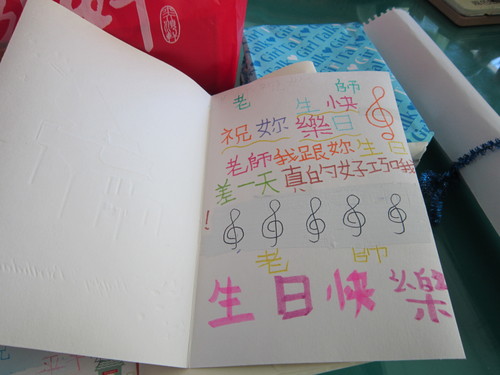 老 師
生 快
祝妳樂日
老師我跟妳生日
差一天真的好巧哦
!
老 師
生日快樂
Girl Talk